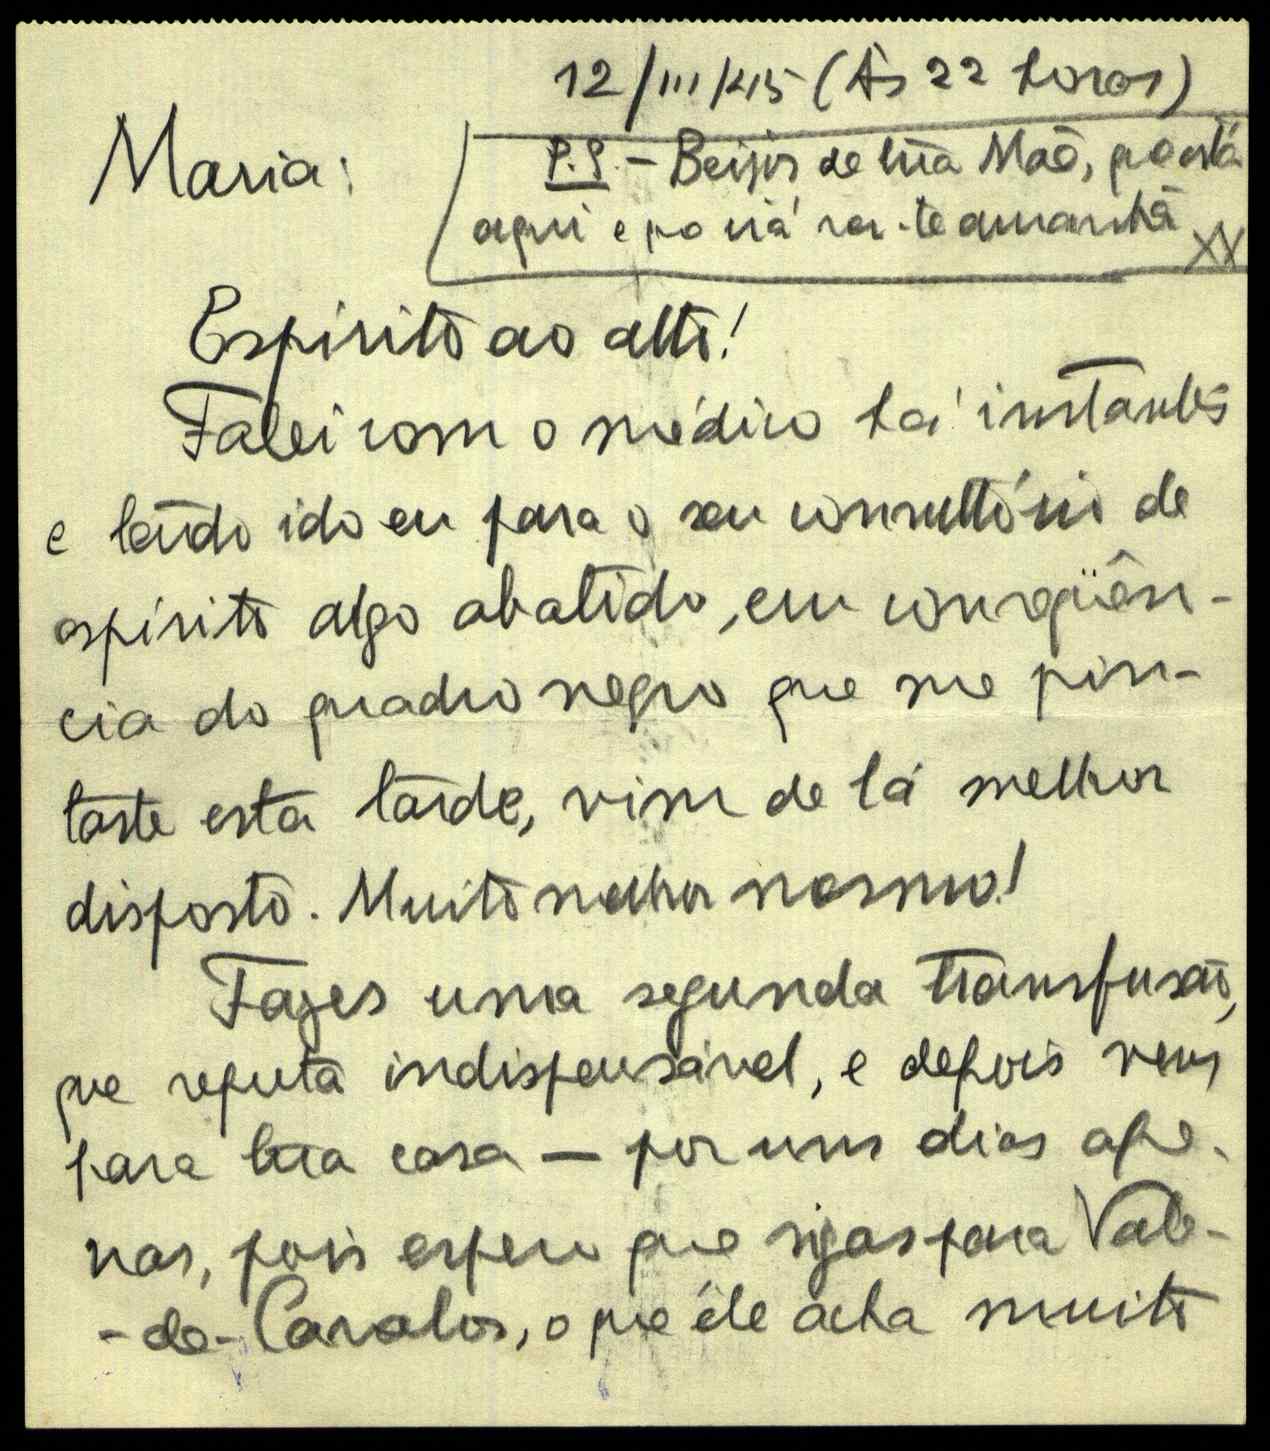 12/III/45 (Às 22 horas)
Maria:
P.S. - Beijos de tua Mãe, que está
aqui e que irá ver-te amanhã XX
Espírito ao alto!
Falei com o médico há instantes
e tendo ido eu para o seu consultório de
espírito algo abatido, em conseqüên-
cia do quadro negro que me pin-
taste esta tarde, vim de lá melhor
disposto. Muito melhor mesmo!
Fazes uma segunda transfusão,
que reputa indispensável, e depois vens
para tua casa — por uns dias ape-
nas, pois espero que sigas para Vale-
-de-Cavalos, o que êle acha muito